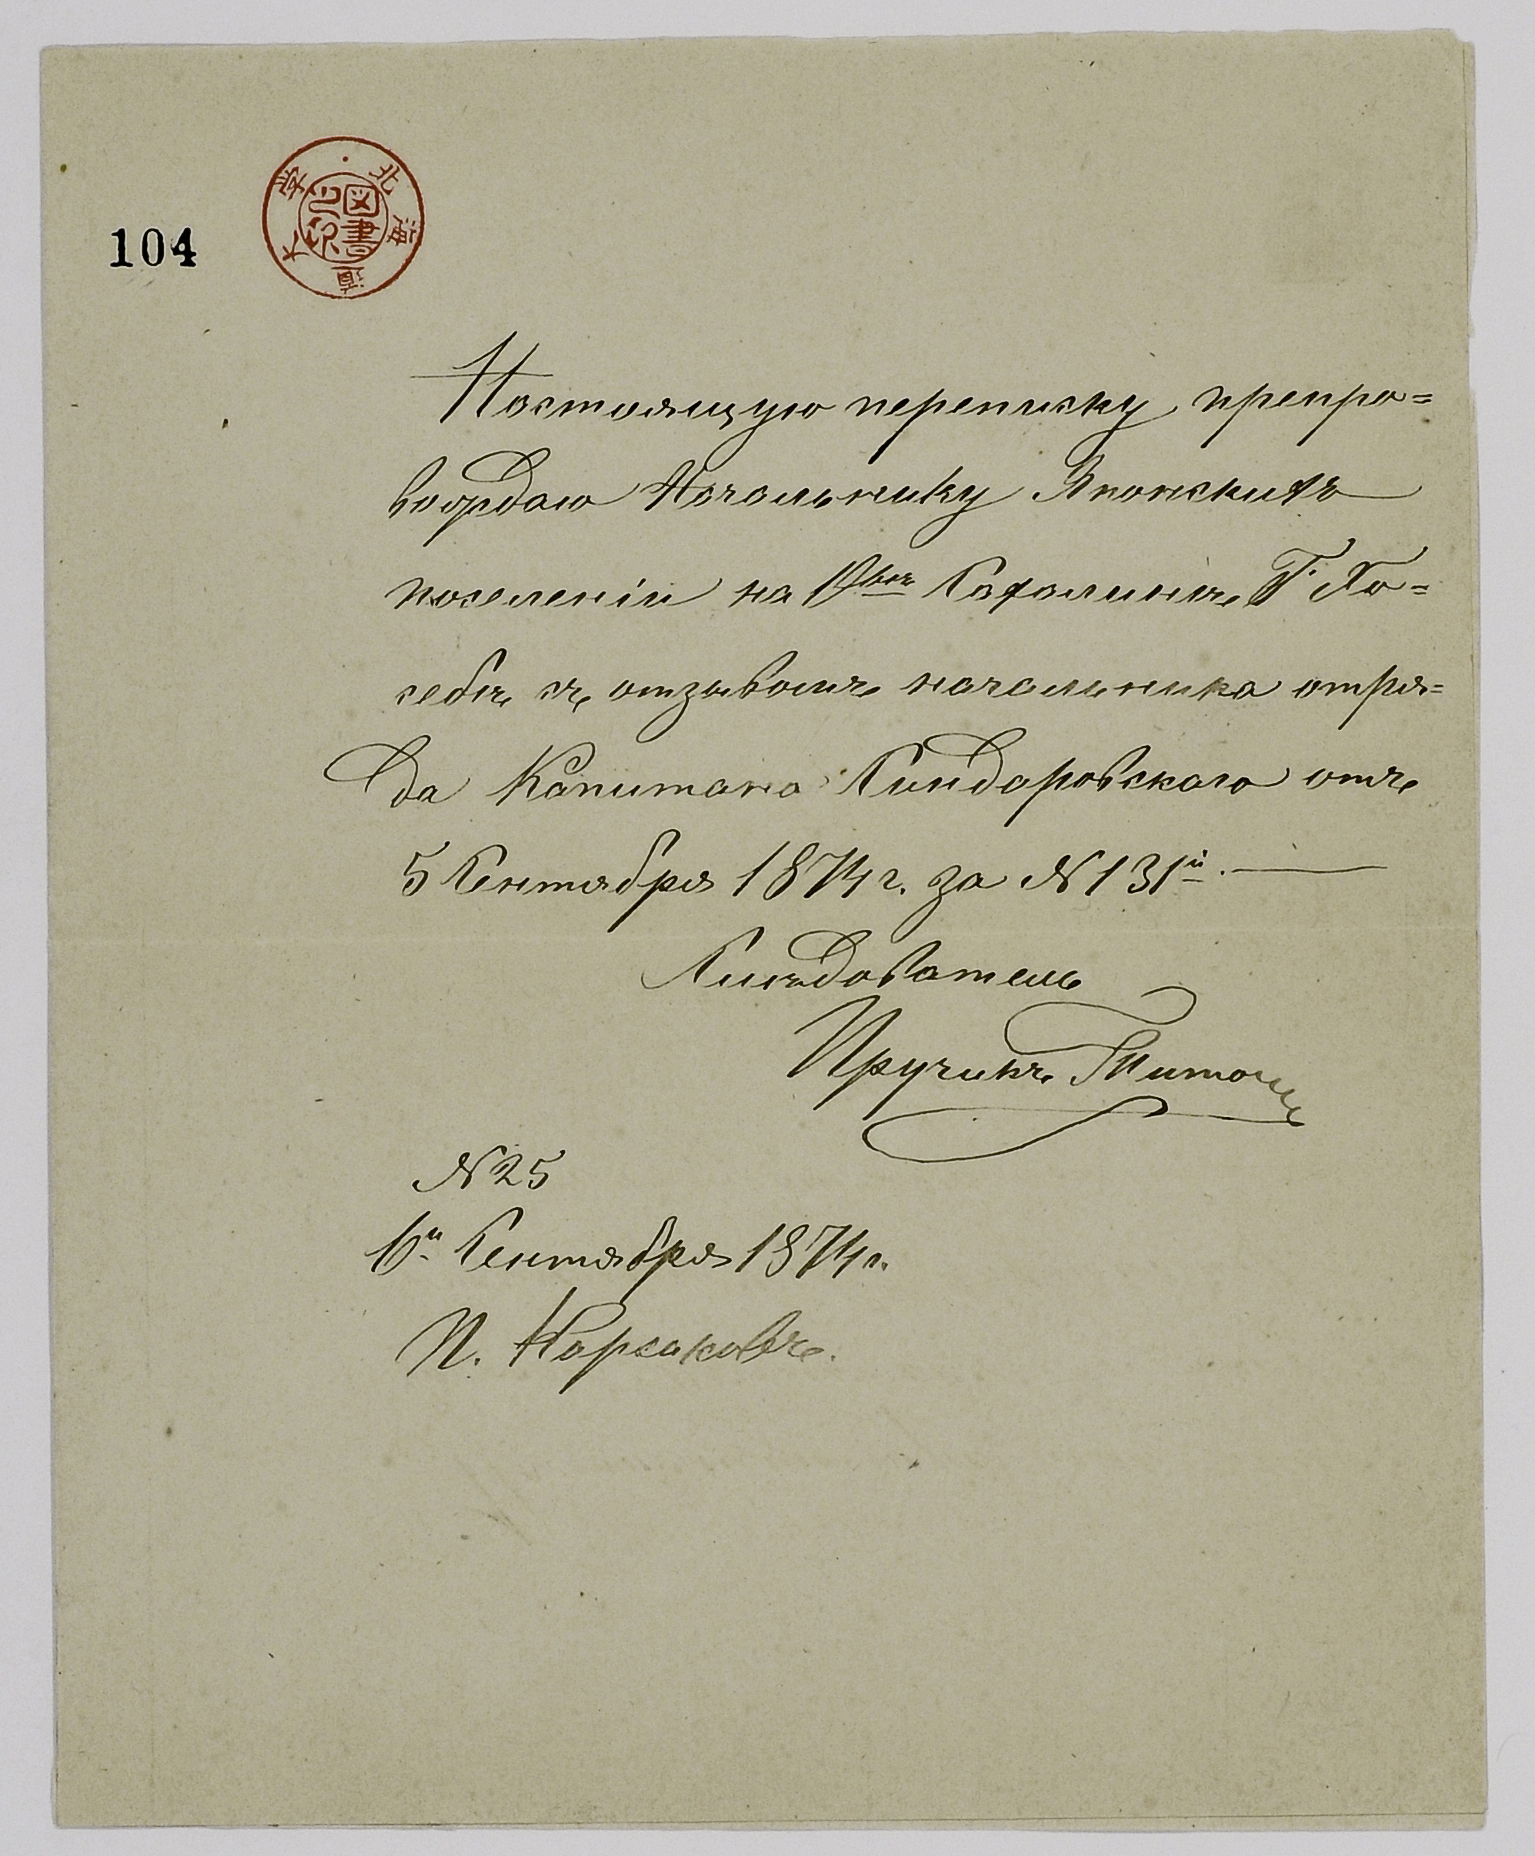 104
北海道大学
図書之印
Настоящую переписку препро=
вождаю Начальнику Японскихъ
поселеній на О-вѣ Сахалинѣ, Г. Хо=
себѣ, съ отзывомъ начальника отря=
да Капитана Синдаровскаго отъ
5 Сентября 1874 г. за N 131й.
Слѣдователь
Пручикъ Титовъ
N 25
6й Сентября 1874 г.
П. Корсаковъ.